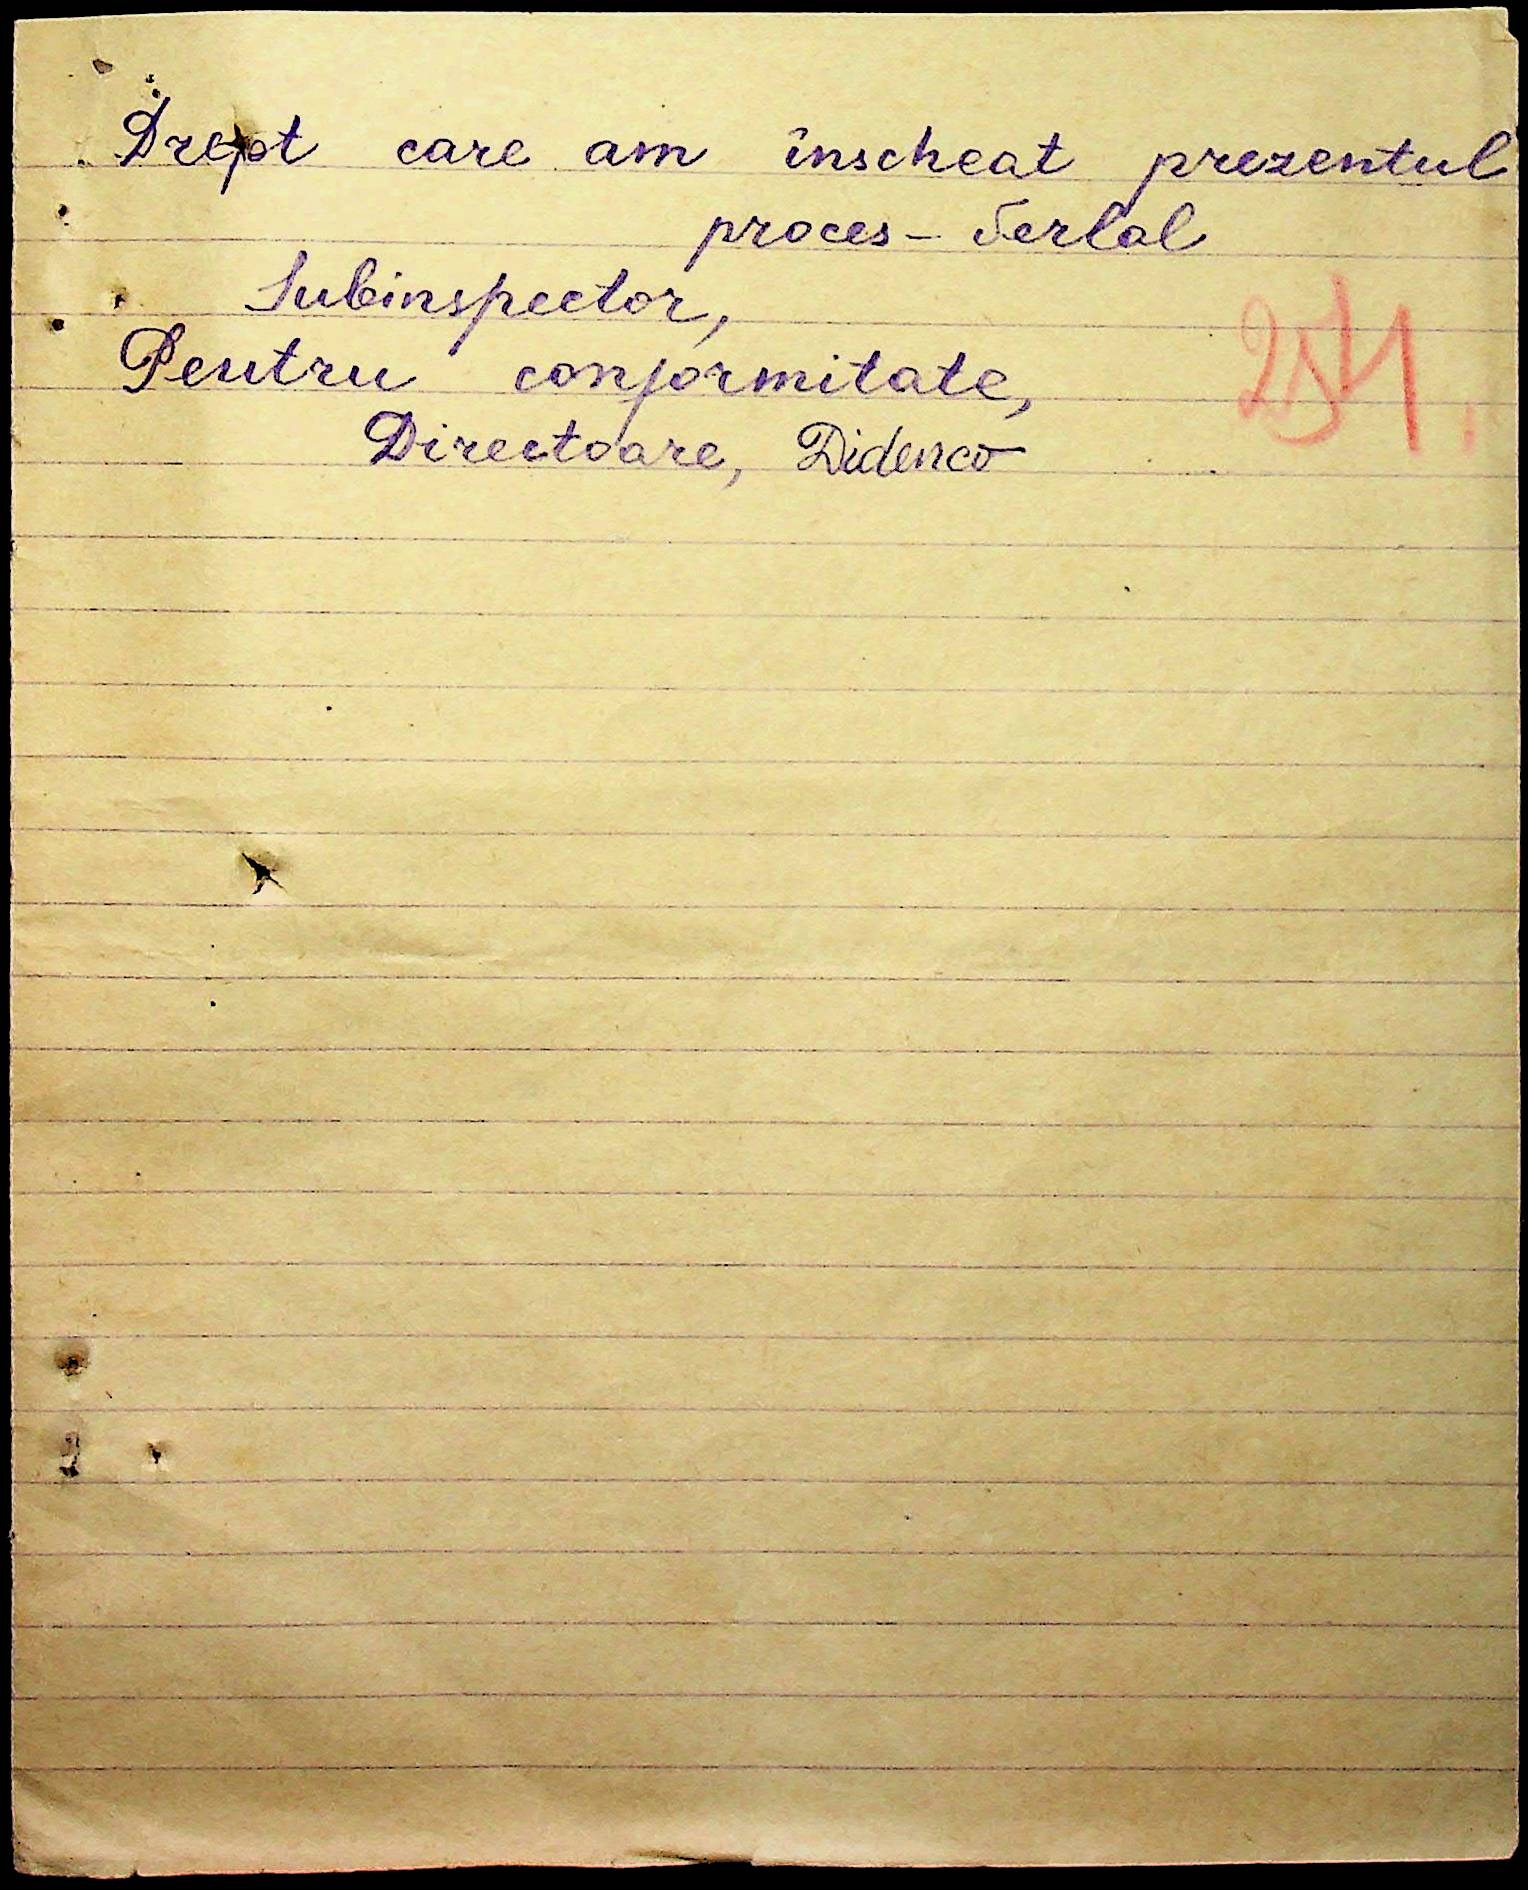 Drept care am înscheat prezentul
proces-verbal
Subinspector,
Pentru conformitate,
Directoare, Didenco